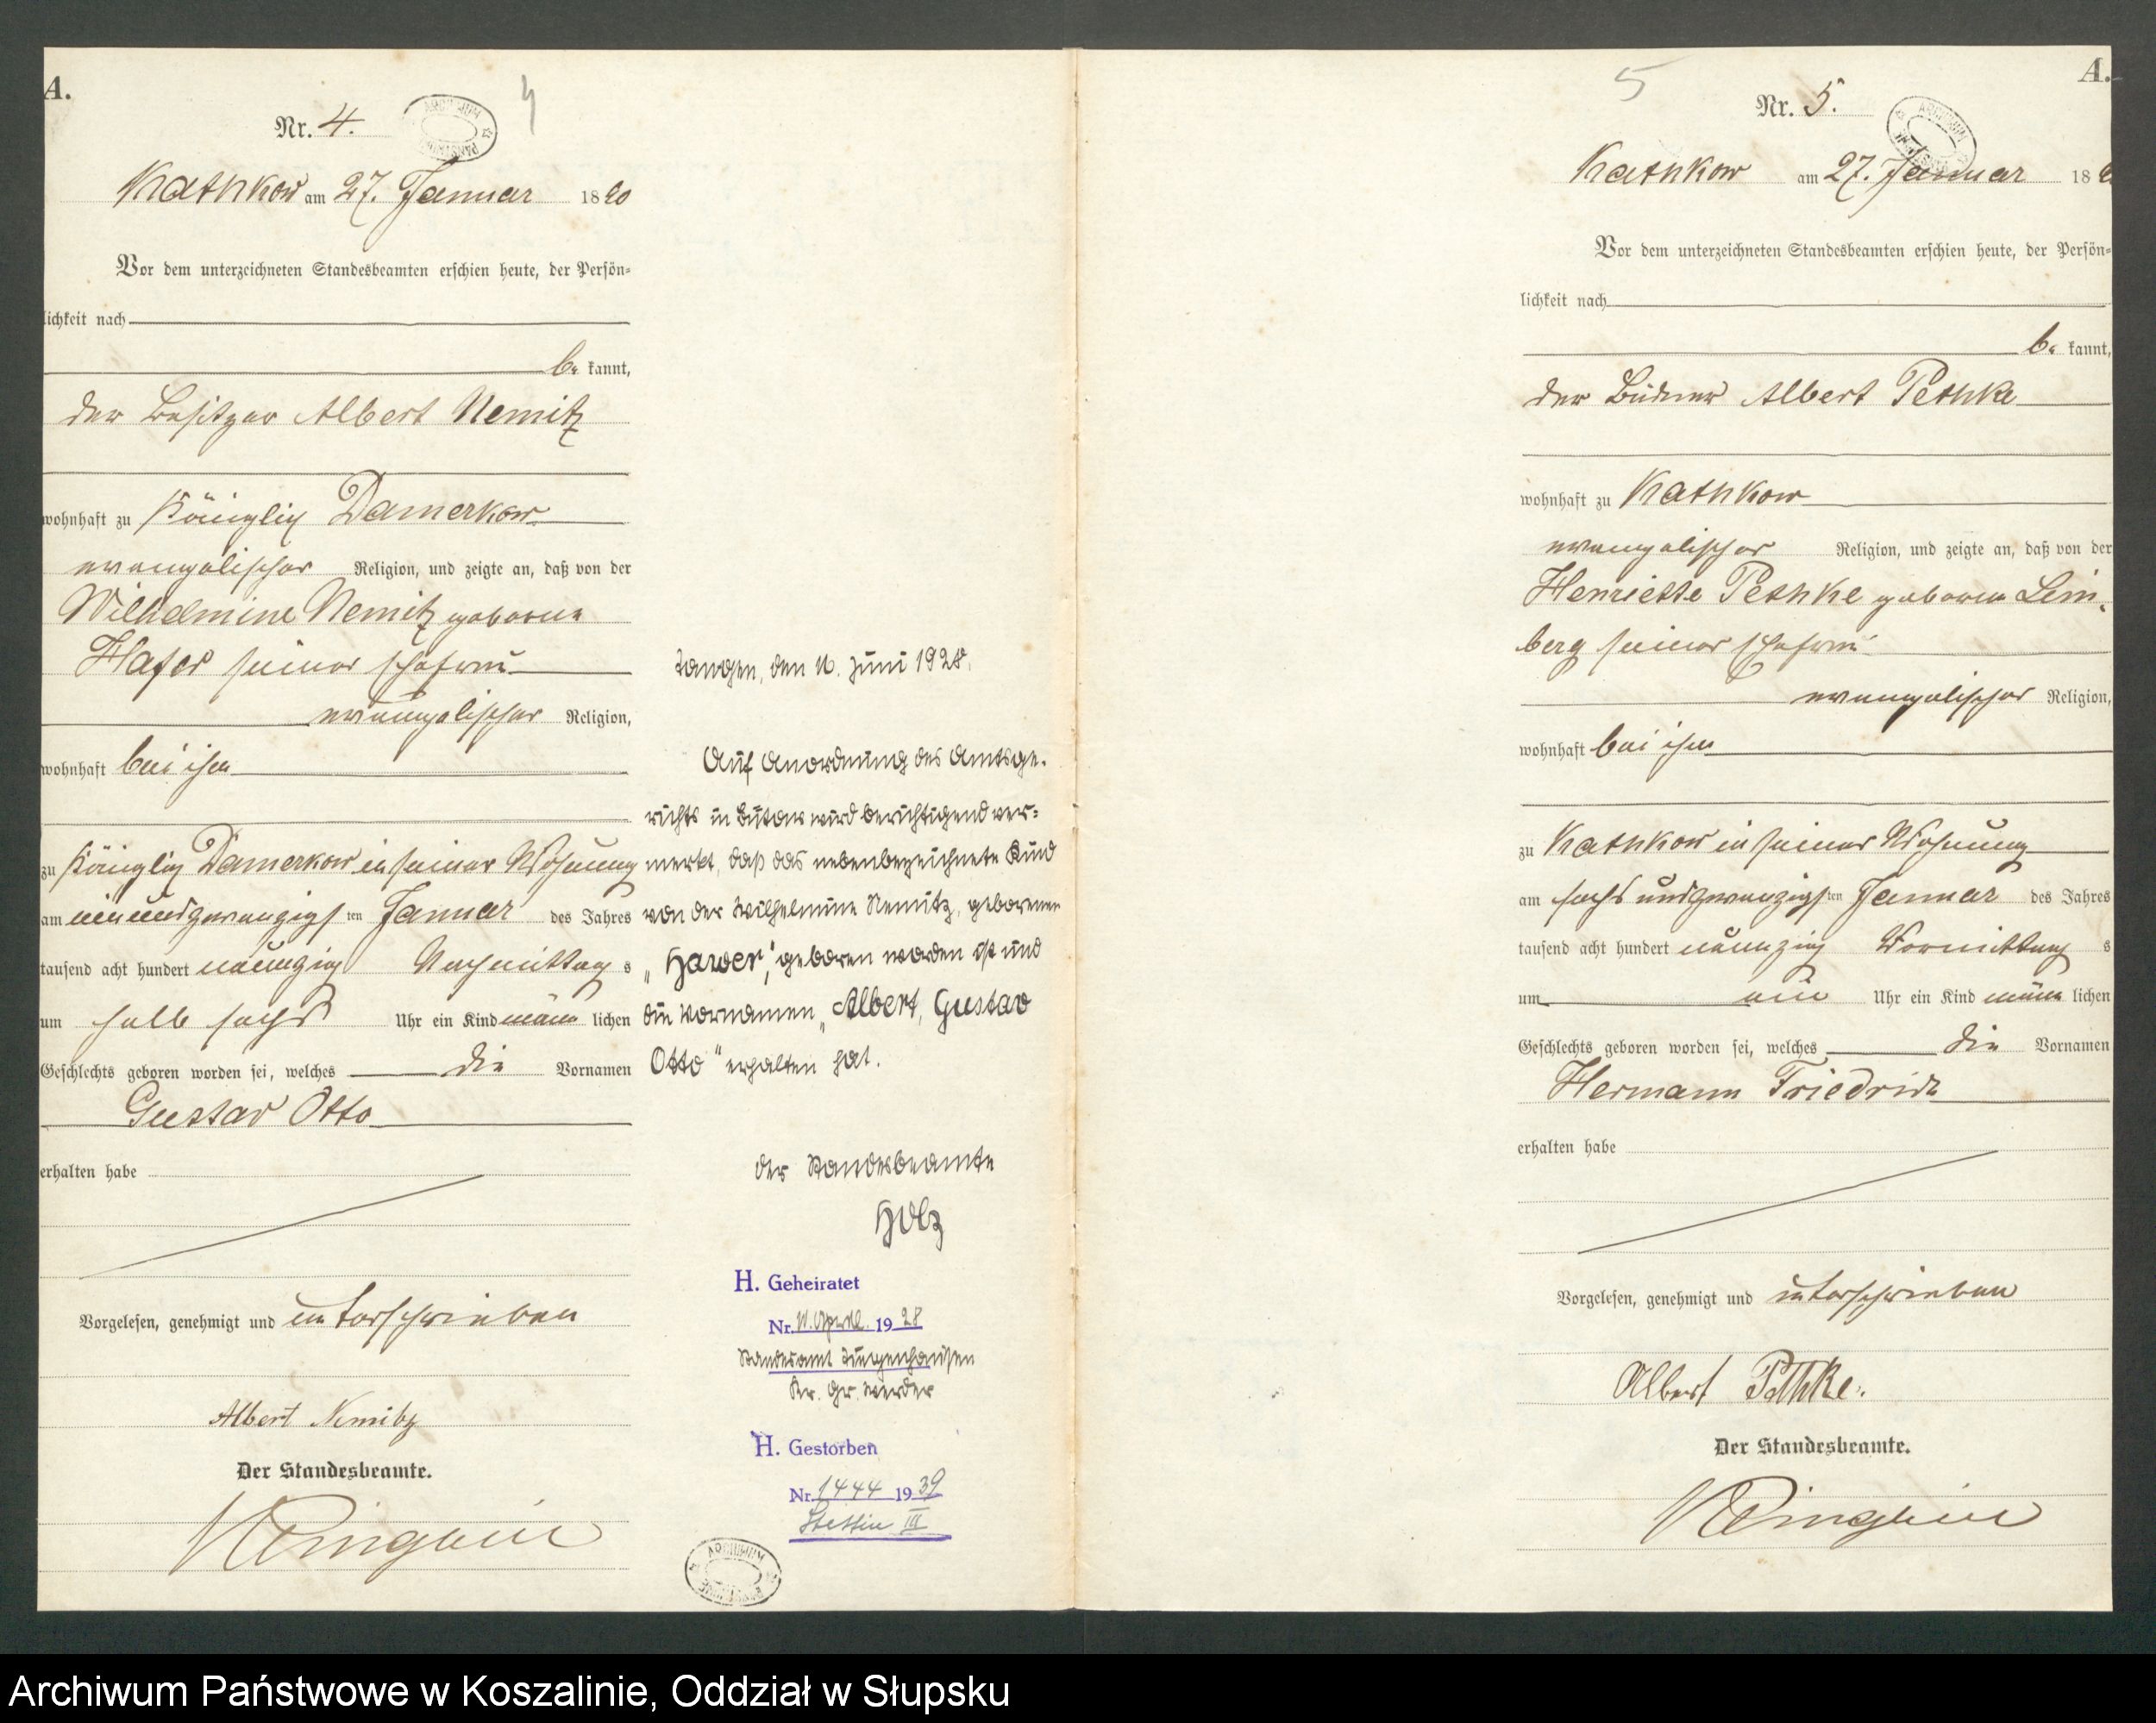 A.
Nr. 4.
4
Kathkow am 27. Januar 1890
Vor dem unterzeichneten Standesbeamten erschien heute, der Persön=
lichkeit nach
be kannt,
der Besitzer Albert Nemitz
wohnhaft zu Königlich Damerkow
evangelischer Religion, und zeigte an, daß von der
Wilhelmine Nemitz geborene
Hafer seiner Ehefrau
evangelischer Religion,
wohnhaft bei ihm
zu Königlich Damerkow in seiner Wohnung
am einundzwanzigsten Januar des Jahres
tausend acht hundert neunzig Nachmittag s
um halb sechs Uhr ein Kind männ lichen
Geschlechts geboren worden sei, welches die Vornamen
Gustav Otto
erhalten habe
Vorgelesen, genehmigt und unterschrieben
Albert Nemitz
Der Standesbeamte.
den 11. Juni 1928.
Auf Anordnung des Amtsge-
richts in Bütow wird berichtigend ver=
merkt, daß das nebenbezeichnete Kind
von der Wilhelmine Nemitz, geborenen
"Hawer", geboren worden ist und
die Vornamen "Albert, Gustav
Otto" erhalten hat.
Der Standesbeamte
Holz
H. Geheiratet
Nr. 11. April 1928
Standesamt
Kr. Gr. Werder
H. Gestorben
Nr. 1444 1939
Stettin III
ARCHIWUM
5
A.
Nr. 5.
Kathkow am 27. Januar 18
Vor dem unterzeichneten Standesbeamten erschien heute, der Persön=
lichkeit nach
be kannt,
der Büdner Albert Pethke
wohnhaft zu Kathkow
evangelischer Religion, und zeigte an, daß von der
Henriette Pethke geborene Lem-
berg seiner Ehefrau
evangelischer Religion,
wohnhaft bei ihm
zu Kathkow in seiner Wohnung
am sechsundzwanzigsten Januar des Jahres
tausend acht hundert neunzig Vormittag s
um ein Uhr ein Kind männ lichen
Geschlechts geboren worden sei, welches die Vornamen
Hermann Friedrich
erhalten habe
Vorgelesen, genehmigt und unterschrieben
Albert Pethke.
Der Standesbeamte.
Archiwum Państwowe w Koszalinie, Oddział w Słupsku